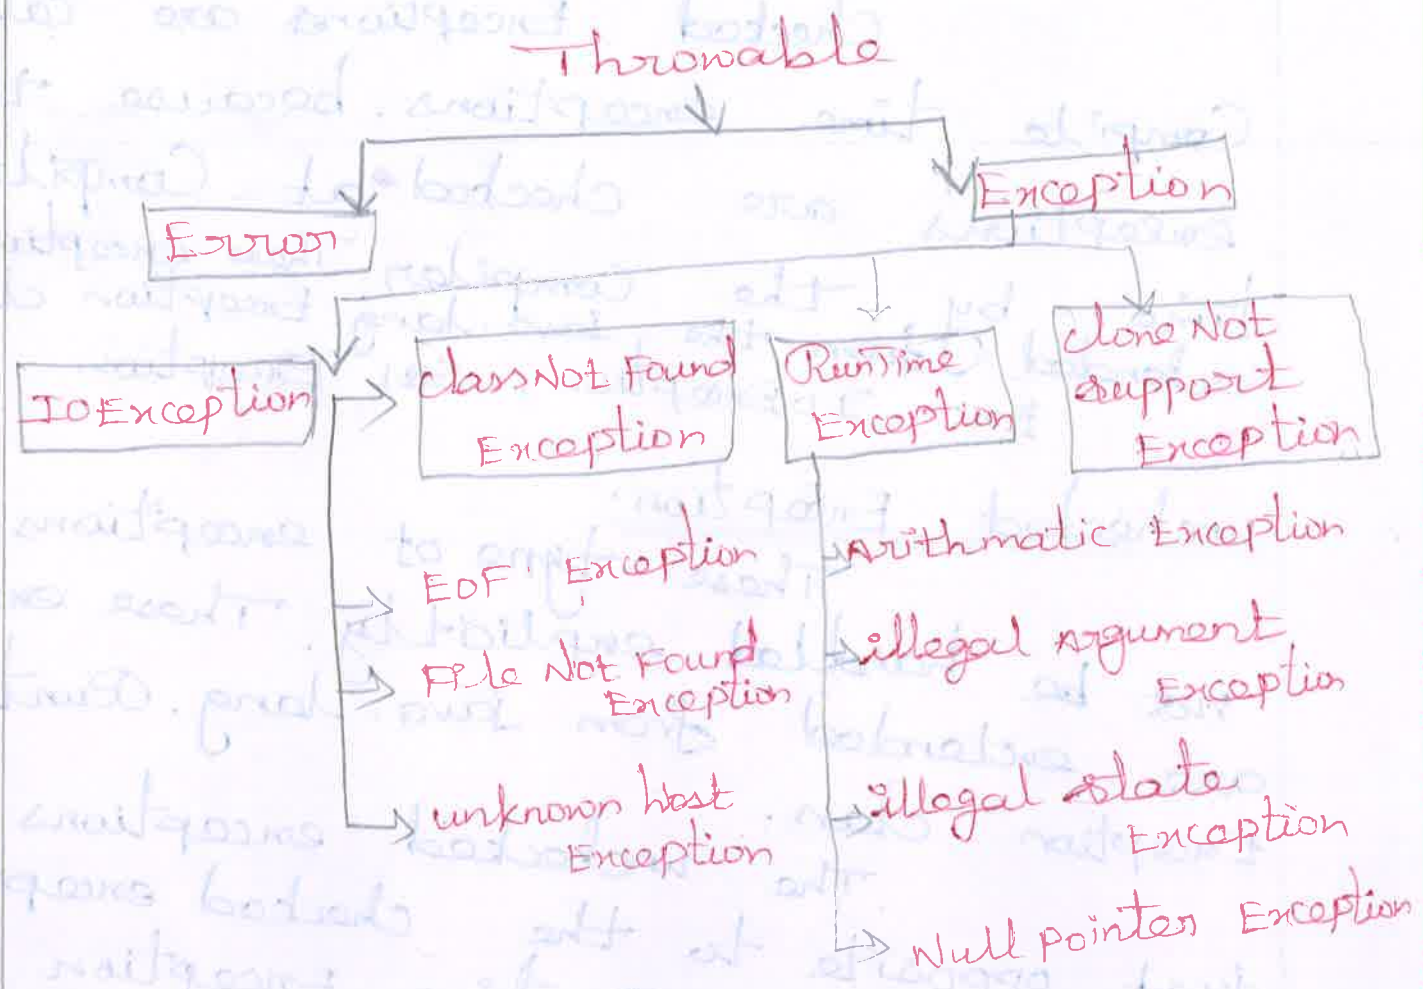 Throwable
Exception
Error
IOException
classNot Found
Exception
RunTime
Exception
clone Not
support
Exception
EOF Exception
File Not Found
Exception
unknown host
Exception
Arithmatic Exception
illegal Argument
Exception
illegal state
Exception
Null pointer Exception